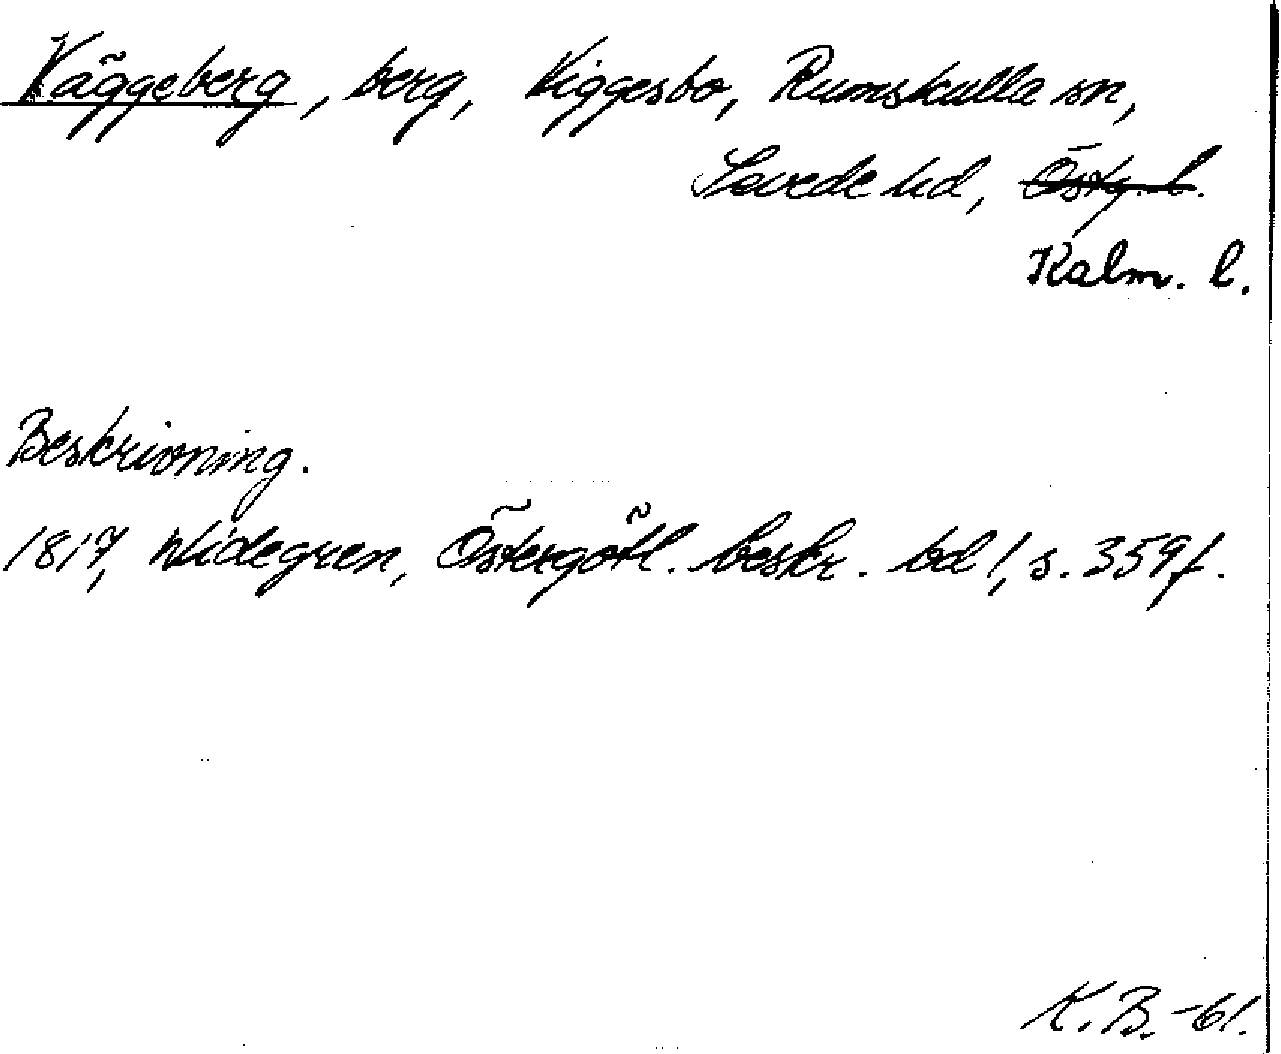 Väggeberg, berg, Viggesbo, Rumskulla sn,
Sevede hd, Östg. l.
Kalm. l.
Beskrivning.
1817, Widegren, Östergötl. beskr. bd 1, s. 359 f.
K.B. -61.